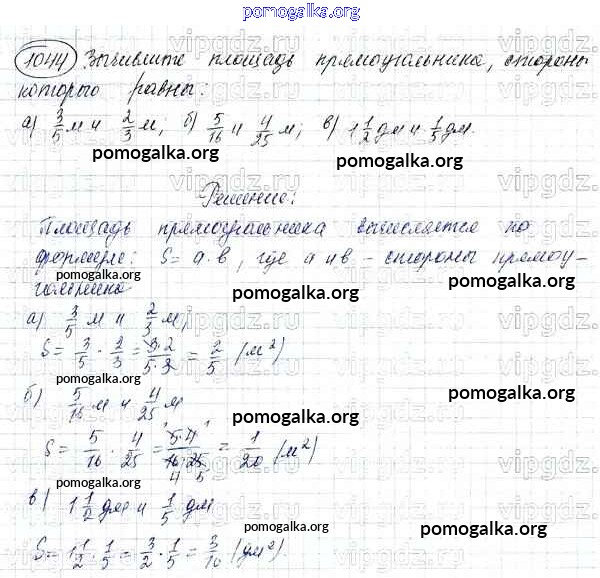 pomogalka.org
1044 Вычислите площадь прямоугольника, стороны
которого равны:
а) 3/5 м и 2/3 м; б) 5/16 и 4/25 м; в) 1 1/2 дм и 1/5 дм.
pomogalka.org pomogalka.org
Решение:
pomogalka.org
Площадь прямоугольника вычисляется по
формуле: S = a·b, где a и b – стороны прямоу-
гольника
pomogalka.org
а) 3/5 м и 2/3 м,
S = 3/5 · 2/3 = 3·2/5·3 = 2/5 (м²)
pomogalka.org
pomogalka.org
б) 5/16 м и 4/25 м
pomogalka.org
S = 5/16 · 4/25 = 5·4/16·25 = 1/20 (м²)
в) 1 1/2 дм и 1/5 дм
pomogalka.org
pomogalka.org
S = 1 1/2 · 1/5 = 3/2 · 1/5 = 3/10 (дм²).